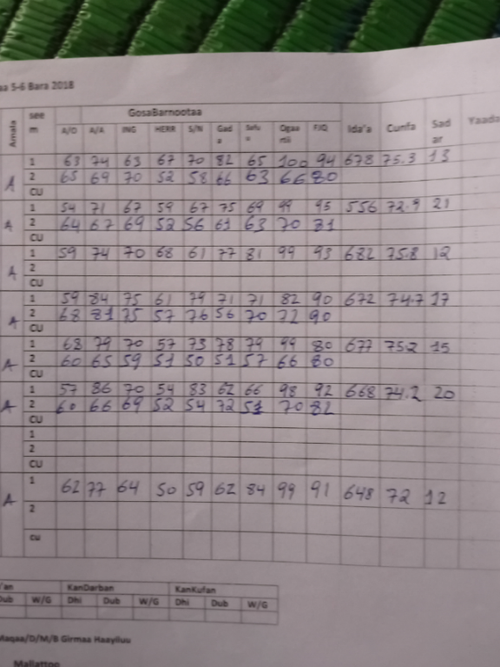 5-6 Bara 2018
Amala see m GosaBarnootaa Ida'a Cunfa Sad ar Yaada
A/O A/A ING HERR S/N Gad a Safu u Ogaa mii FJQ
A 1 63 74 63 67 70 82 65 100 94 678 75.3 13
2 65 69 70 52 58 66 63 66 80
CU
A 1 54 71 67 59 67 75 69 99 95 556 72.9 21
2 64 67 69 52 56 61 63 70 81
CU
A 1 59 74 70 68 61 77 81 99 93 682 75.8 12
2
CU
A 1 59 84 75 61 79 71 71 82 90 672 74.7 17
2 68 81 75 57 76 56 70 72 90
CU
A 1 68 79 70 57 73 78 79 99 80 677 75.2 15
2 60 65 59 51 50 51 57 66 80
CU
A 1 57 86 70 54 83 62 66 98 92 668 74.2 20
2 60 66 69 52 54 72 51 70 82
CU
1
2
CU
A 1 62 77 64 50 59 62 84 99 91 648 72 12
2
CU
KanDarban KanKufan
Dub W/G Dhi Dub W/G Dhi Dub W/G
Maqaa/D/M/B Girmaa Haayiluu
Mallattoo